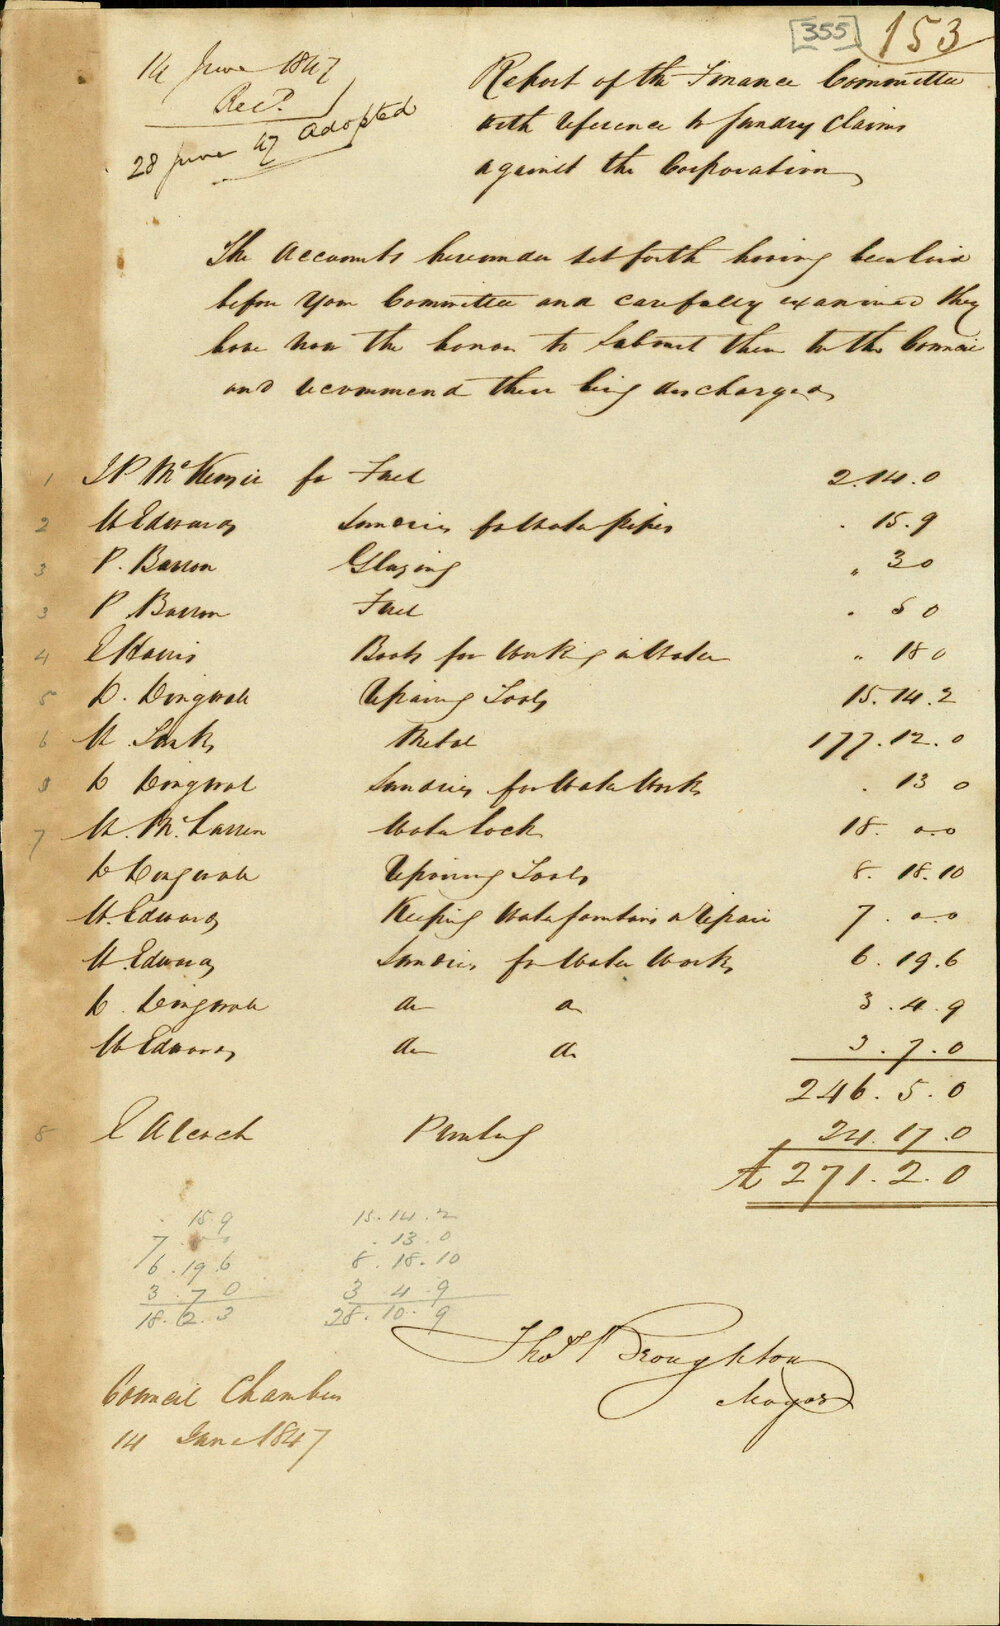 355 153
14 June 1847
Recd.
28 June 47 adopted
Report of the Finance Committee
with reference to sundry Claims
against the Corporation
The Accounts hereunder set forth having been laid
before Your Committee and carefully examined they
have now the honor to submit them to the Council
and recommend their being discharged
1 J P McKenzie for Fuel 2.14.0
2 W Edwards Sundries for Water pipes . 15.9
3 P. Barron Glazing " 3 0
3 P. Barron Fuel . 5 0
4 E Harris Boots for Working in Water " 18 0
5 D. Dingwall Repairing Tools 15.14.2
6 W. Metal 177.12.0
D Dingwall Sundries for Water Works . 13 0
7 W. McLarren Water Cock 18. 0.0
D Dingwall Repairing Tools 8. 18.10
W. Edwards Keeping Water fountains in Repair 7. 0.0
W. Edwards Sundries for Water Works 6. 19.6
D. Dingwall do do 3.4.9
W Edwards do do 3.7.0
246.5.0
8 E Alcock Printing 24.17.0
£ 271.2.0
. 15.9 15.14.2
7 . 0 0 . 13.0
6.19.6 8.18.10
3.7 0 3 4.9
18.2.3 28.10.9
Thos Broughton
Mayor
Council Chamber
14 June 1847